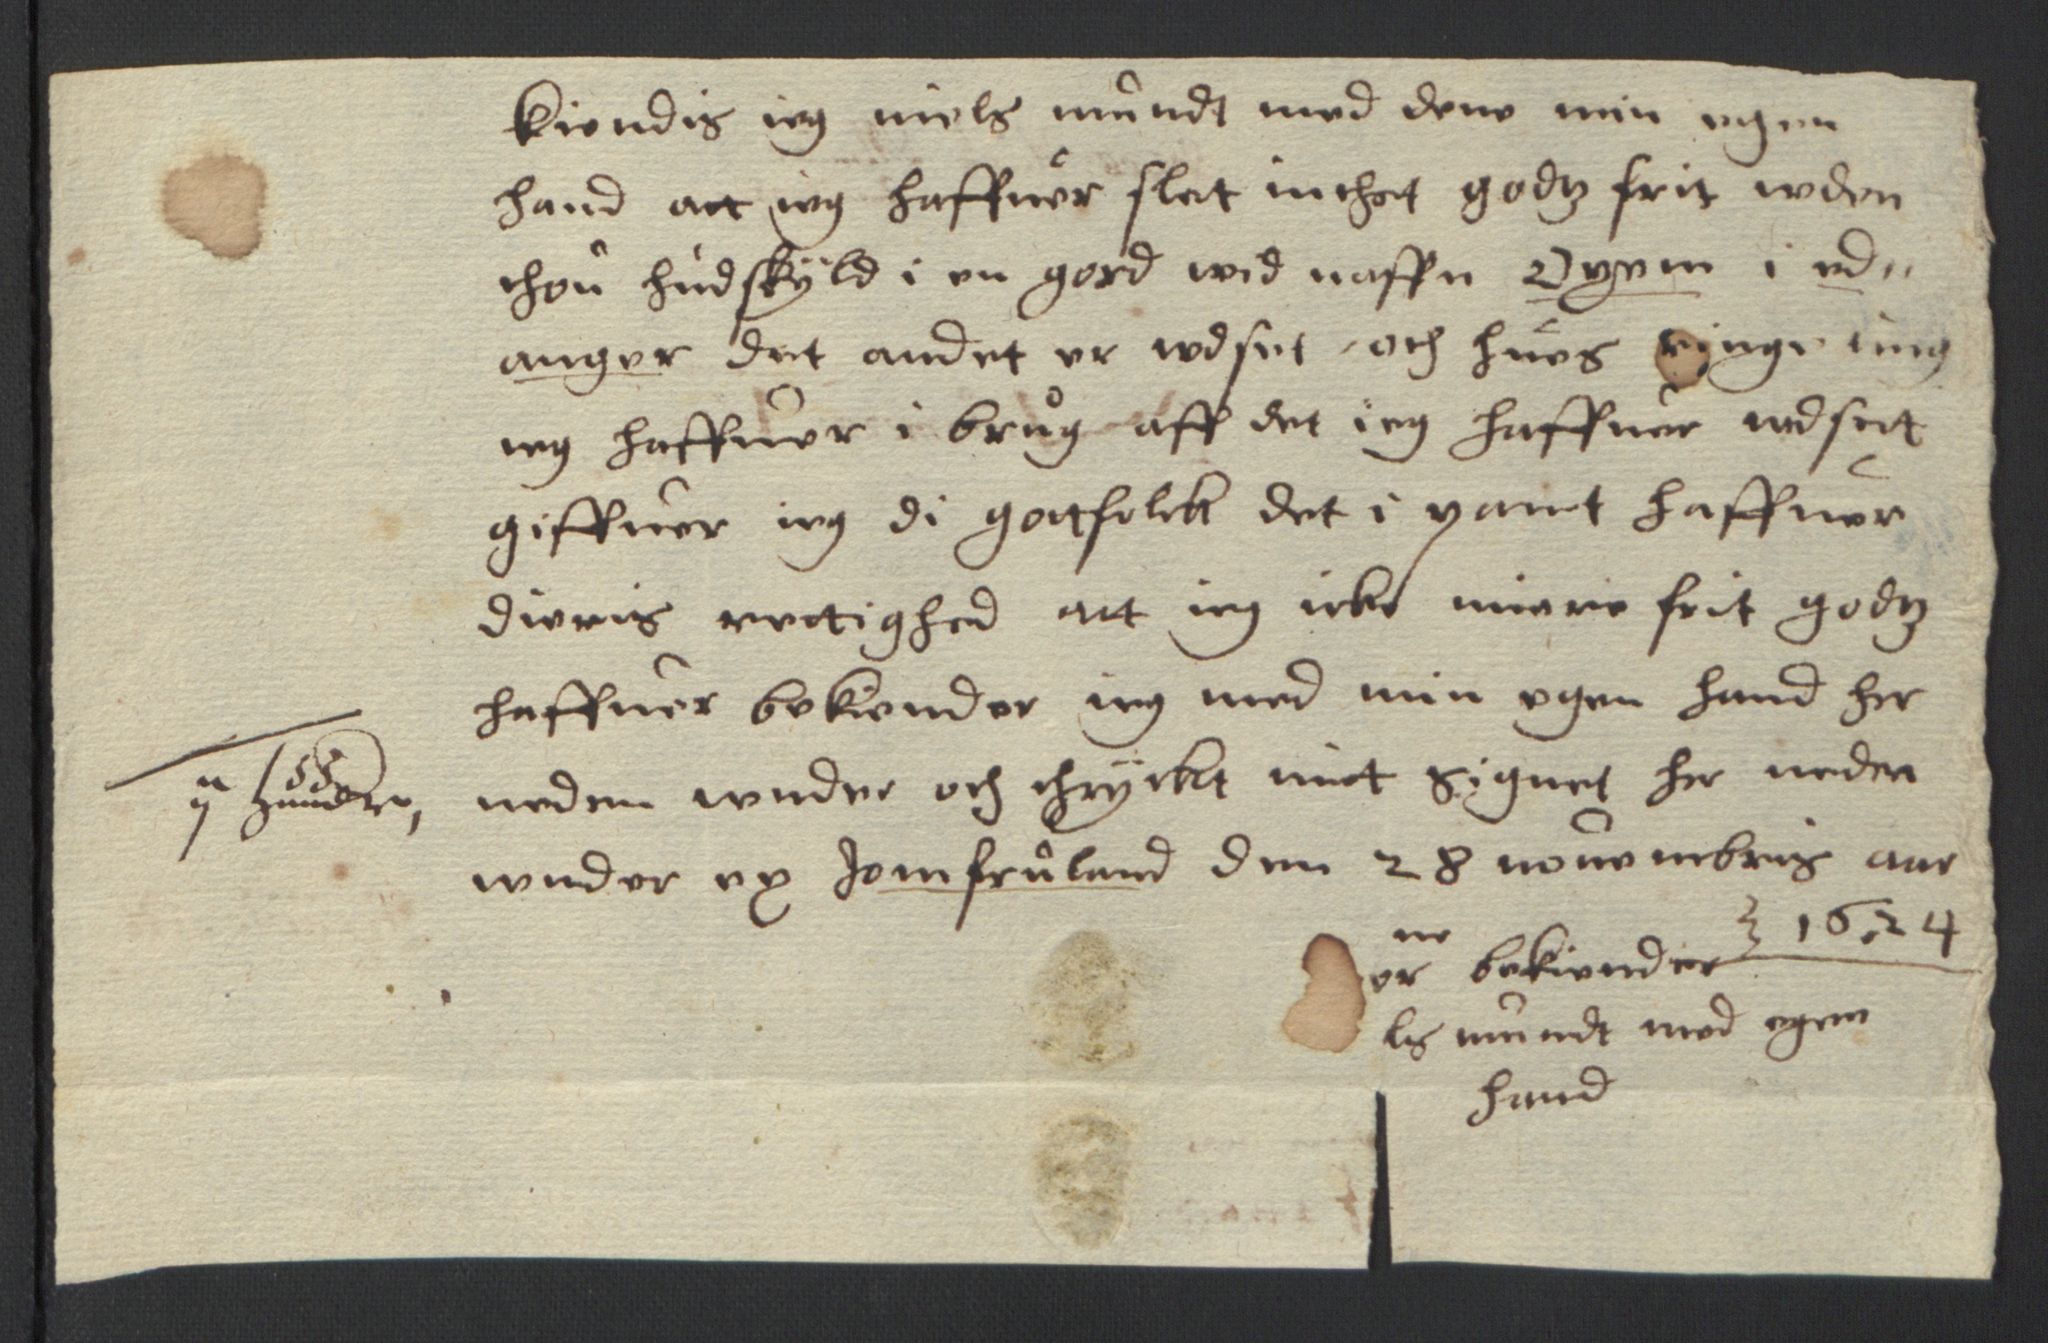 kiendis ieg niels mundt med dene min egen
hand att ieg haffuer slet inthet godtz frit uden
thou hudskÿld i en gord ved naffn Oyem i ed„
anger det andet er udset och hues ringe ting
ieg haffuer i brug aff det ieg haffuer udsett
giffuer ieg di gottfolck det i pant haffuer
dieris rettighed att ieg icke miere frit godtz
haffuer bekiender ieg med min egen hand her
neden under och thrÿckt mit signet her neden
under ex Jomfruland den 28 nouembris aar
1624
ne
er bekiender
ls mundt med egen
hand
ij hunder,